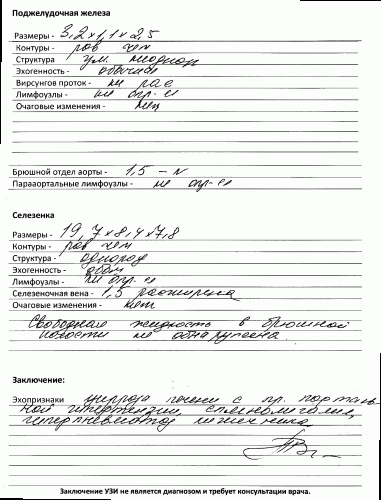 Поджелудочная железа
Размеры - 3,2 х 1,1 х 2,5
Контуры - ров чет
Структура ум. неоднор
Эхогенность - обычная
Вирсунгов проток - не рас
Лимфоузлы - не опр-ся
Очаговые изменения - нет
Брюшной отдел аорты - 1,5 - N
Парааортальные лимфоузлы - не опр-ся
Селезенка
Размеры - 19,7 х 8,4 х 7,8
Контуры - ров чет
Структура - однород
Эхогенность - обыч
Лимфоузлы - не опр-ся
Селезеночная вена - 1,5 расширена
Очаговые изменения - нет
Свободная жидкость в брюшной
полости не обнаружена.
Заключение:
Эхопризнаки цирроза печени с пр. порталь
ной гипертензии, спленомегалии,
кишечника
Заключение УЗИ не является диагнозом и требует консультации врача.